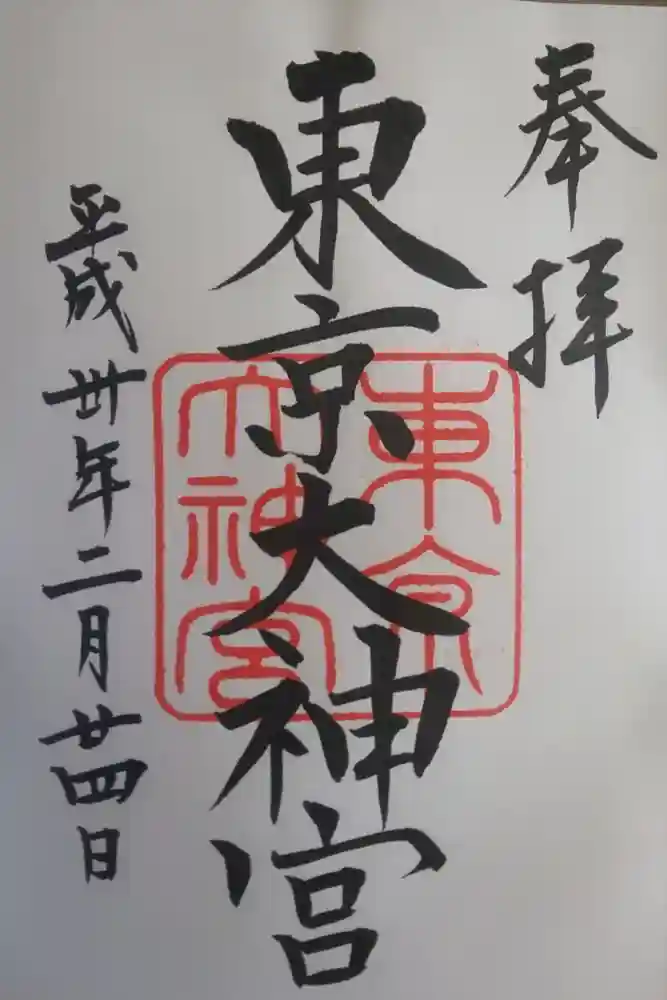 奉拝
東京大神宮
東京
大神宮
平成丗年二月廿四日